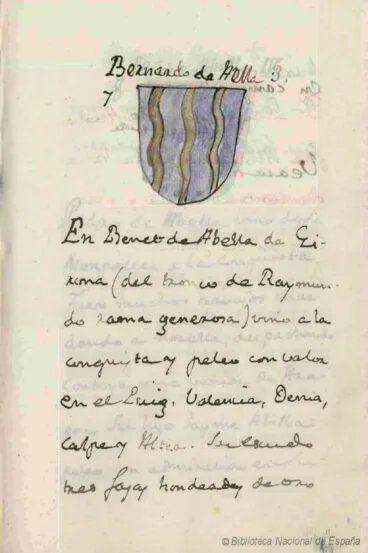 Bernardo de Abella 3.
7
En Benet de Abella de Gi-
rona (del tronco de Raymun-
do rama generosa) vino a la
conquista y peleo con valor
en el Puig. Valencia, Denia,
Calpe y Altea. Su escudo
tres fajas hondeadas de oro
© Biblioteca Nacional de España